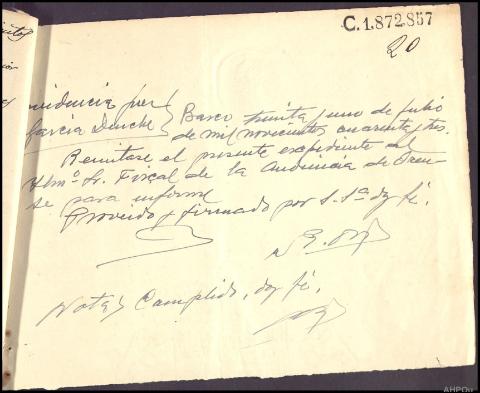 C.1.872.857
20
videncia juez
García Denche
Barco treinta y uno de julio
de mil novecientos cuarenta y tres.
Remítase el presente expediente al
Iltmº Sr. Fiscal de la Audiencia de Oren-
se para informe
Proveido y firmado por S. Sª doy fé.
Nota) Cumplido, doy fé.
AHPOu